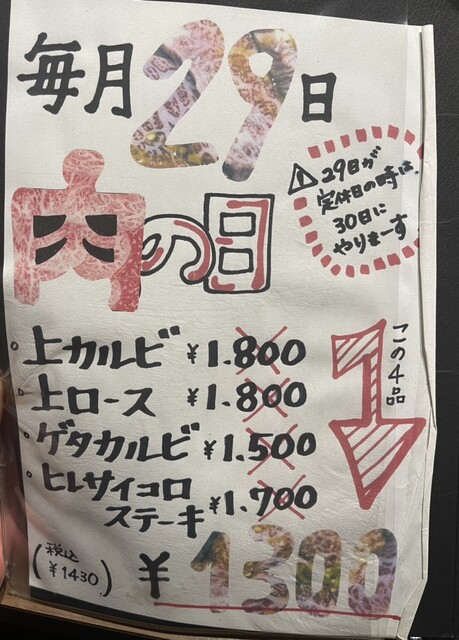 毎月29日
肉の日
29日が
定休日の時は、
30日に
やりまーす
上カルビ ¥1.800
上ロース ¥1.800
ゲタカルビ ¥1.500
ヒレサイコロ
ステーキ ¥1.700
この4品
(税込
¥1430)
¥1300